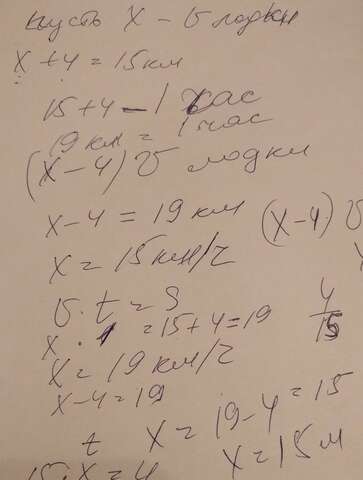 пусть X – υ лодки
X + 4 = 15 км
15 + 4 – 1 час
19 км = 1 час
(X – 4) υ лодки
X – 4 = 19 км
(X – 4) υ
X = 15 км/ч
υ · t = S
X · 1 = 15 + 4 = 19
4/15
X = 19 км/ч
X – 4 = 19
X = 19 – 4 = 15
t
X = 15 м
15 · X = 4